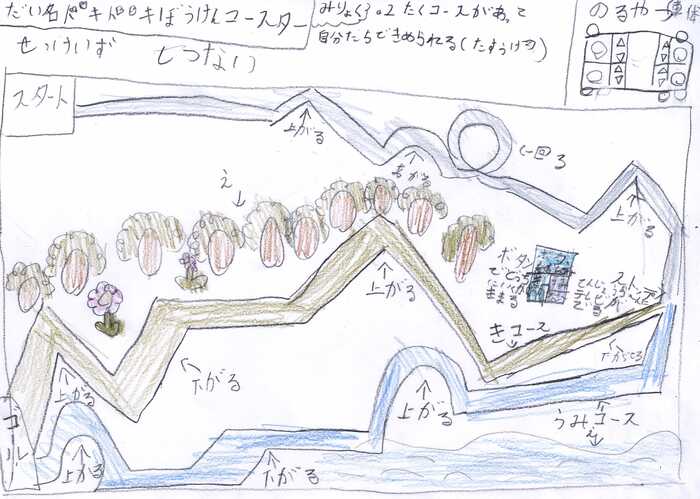 だい名ドキドキぼうけんコースター
せっけいず
しつない
みりょく3.2たくコースがあって
自分たちできめられる(たすうけつ)
のるやつ
スタート
上がる
上がる
一回る
え
上がる
ボタン
でどっち
にいくか
きまる
ストップ
上がる
きコース
下がってる
下がる
上がる
上がる
うみコース
え
ゴール
上がる
下がる